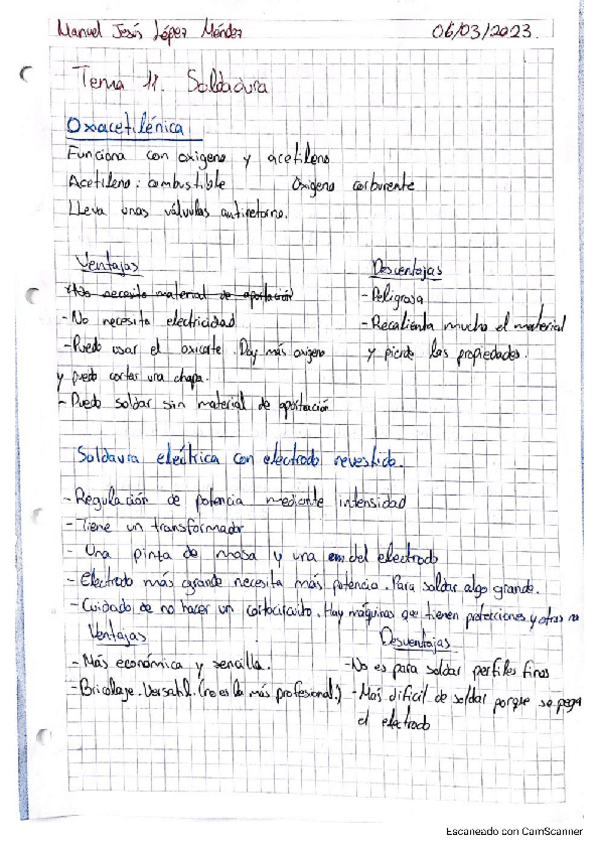 Manuel Jesús López Méndez 06/03/2023.
Tema 11. Soldadura
Oxiacetilénica
Funciona con oxigeno y acetileno
Acetileno: combustible Oxigeno carburente
Lleva unas válvulas antiretorno.
Ventajas Desventajas
-No necesita material de aportación -Peligrosa
-No necesita electricidad -Recalienta mucho el material
-Puedo usar el oxicorte. Doy más oxigeno y pierde las propiedades.
y puedo cortar una chapa.
-Puedo soldar sin material de aportación
Soldaura eléctrica con electrodo revestido.
-Regulación de potencia mediante intensidad
-Tiene un transformador
- Una pinza de masa y una del electrodo
- Electrodo más grande necesita más potencia. Para soldar algo grande.
-Cuidado de no hacer un cortocircuito. Hay máquinas que tienen protecciones y otras no
Ventajas Desventajas
-Más económica y sencilla. -No es para soldar perfiles finos
-Bricolage. Versatil. (no es la más profesional.) -Más dificil de soldar porque se pega
el electrodo
Escaneado con CamScanner